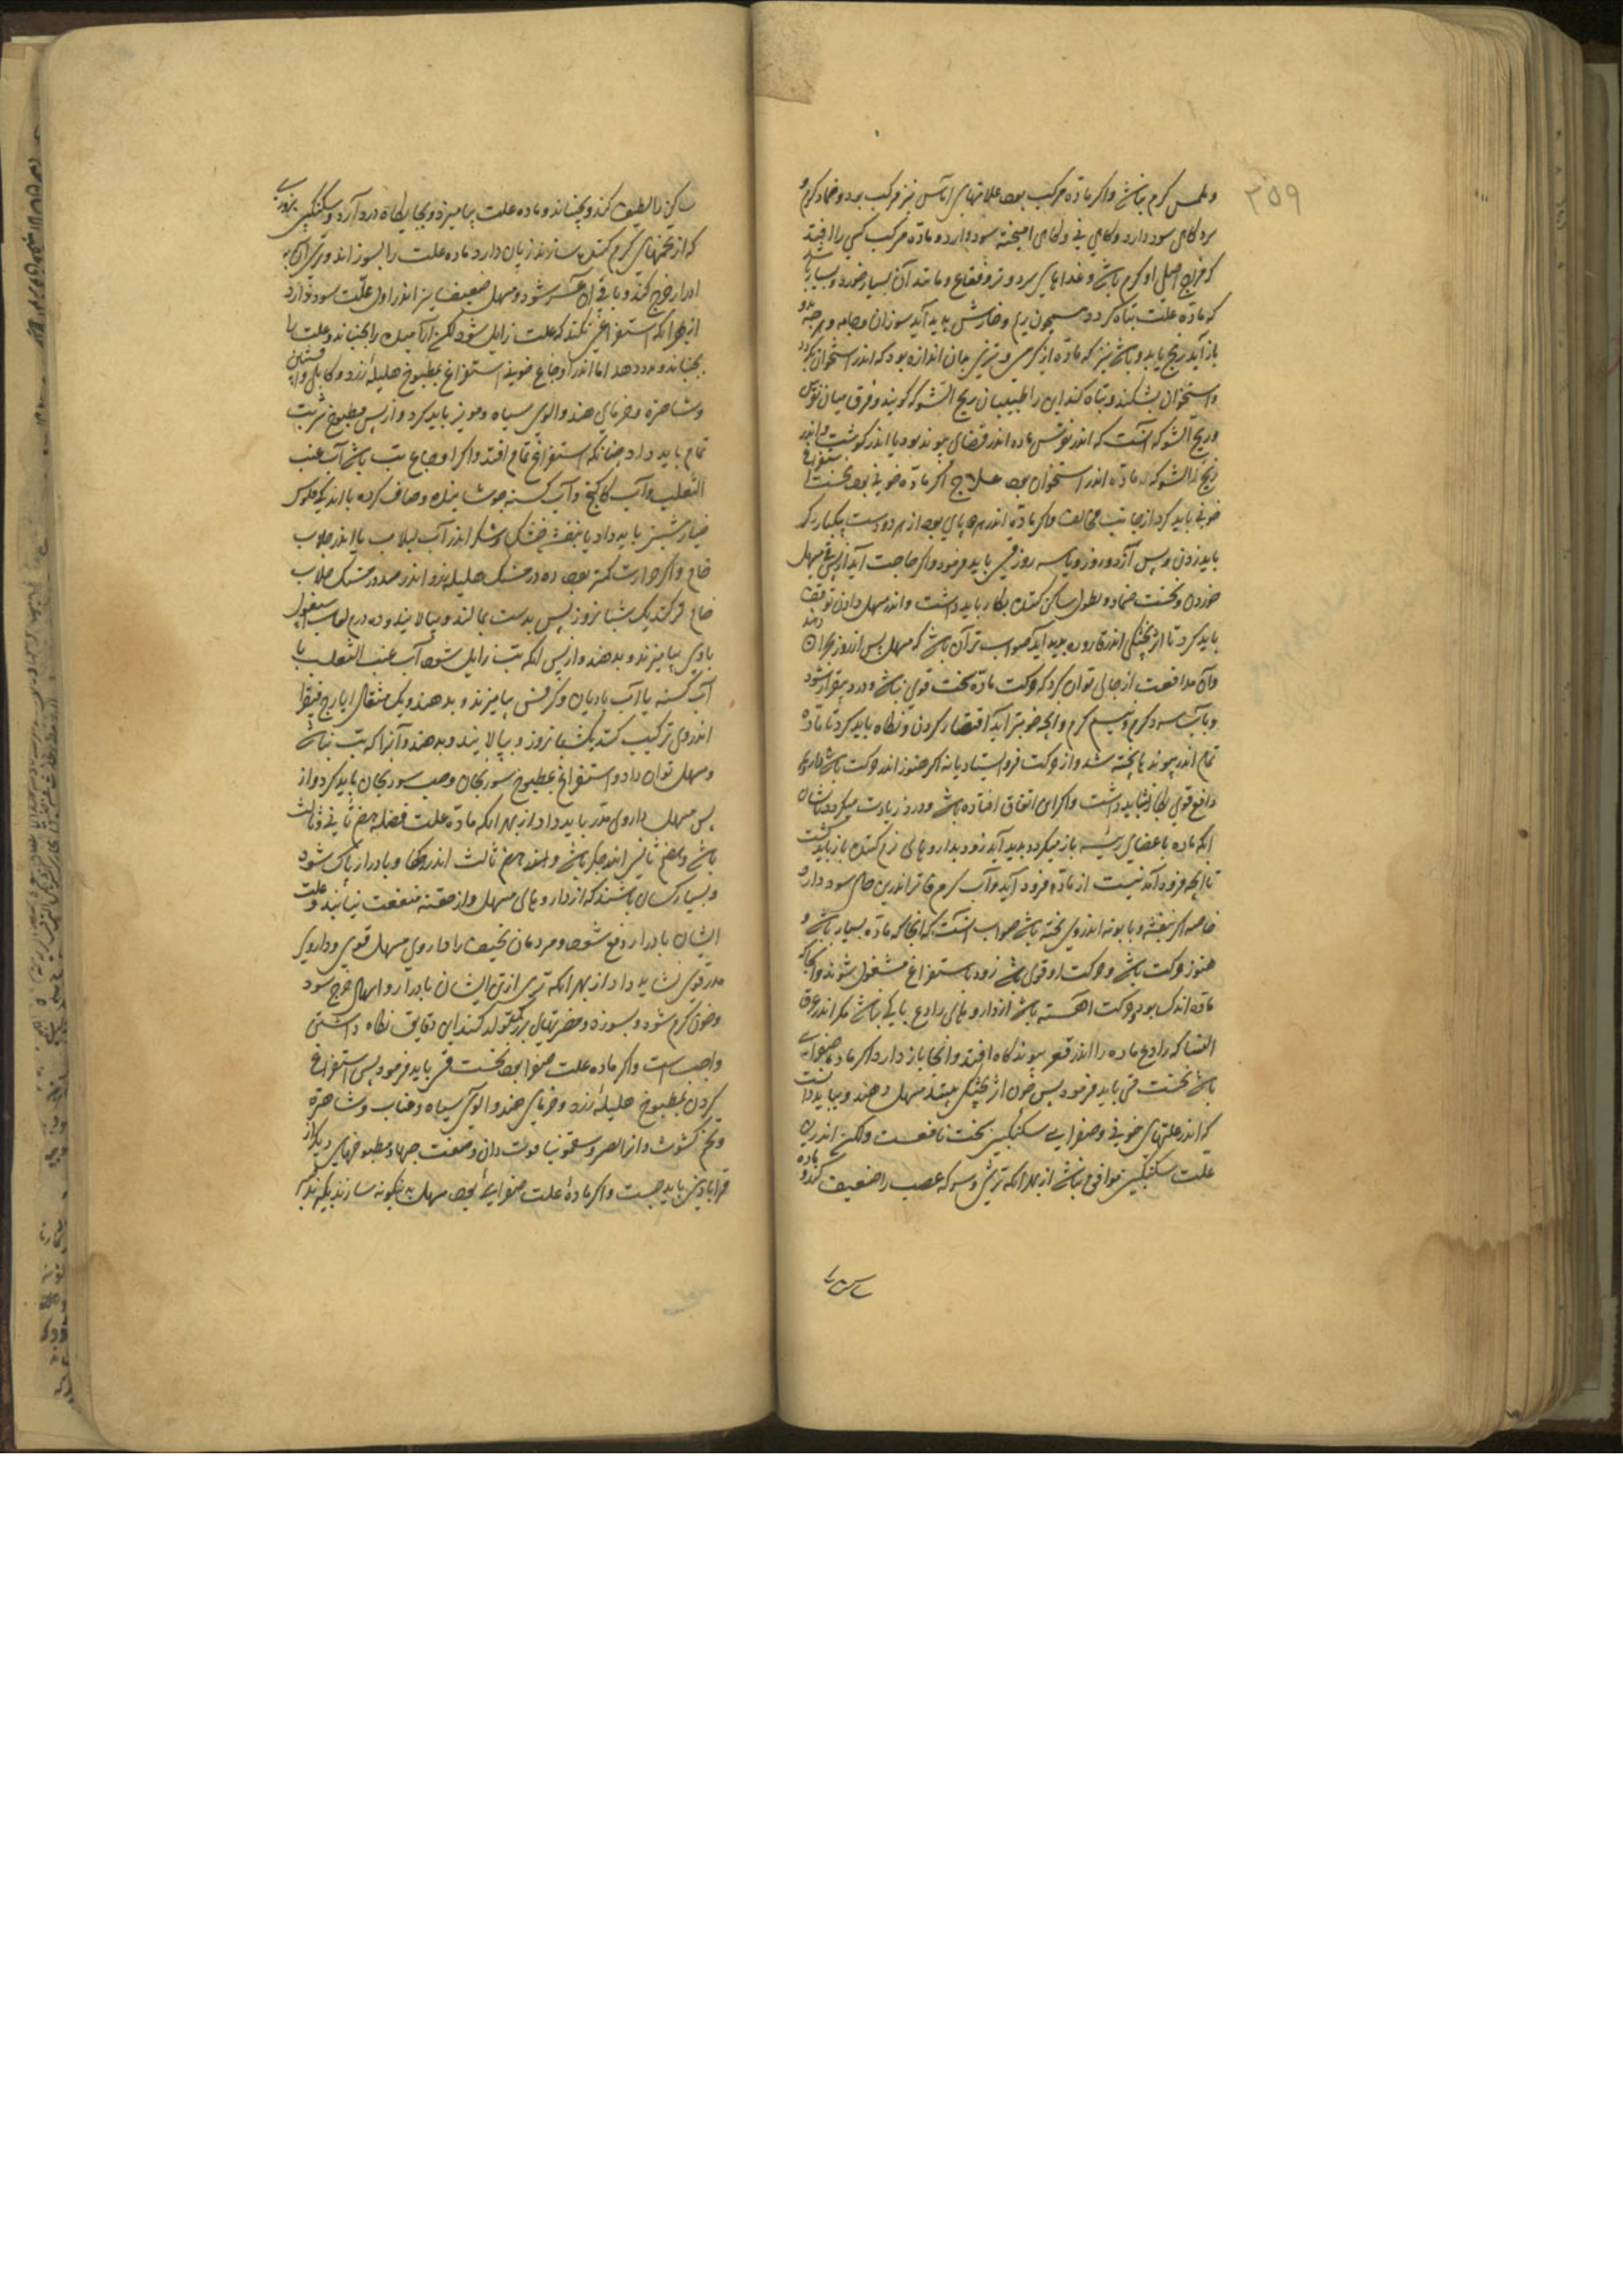 ۲۵۹
و ملمس کرم نباشد واکر مادّه مرکب بود علامتهای اماس نیز مرکب بود و ضماد کرم و
سرد کاهی سود دارد و کاهی نی و کاهی امیخته سود دارد و مادّه مرکب کسی را افتد
که مزاج اصلی او کرم باشد و غذاهای سرد و تر و فقاع و مانند آن بسیار خورد و بسیار باشد
که مادّه علت تباه کردد همچون ریم و خارش پدید آید سوزان و جامه و هرچه بدو
باز آید رنج یابد و باشد نیز که مادّه از کرمی و تیزی بدان اندازه بود که اندر استخوان بکردد
و استخوان بشکند و تباه کند این را طبیبان ریح الشوکه کویند و فرق میان نقرس
و ریح الشوکه آنست که اندر نقرس ماده اندر فضای پیوند بود یا اندر کوشت و اندر
ریح الشوکه مادّه اندر استخوان بود علاج اکر مادّه خونی بود نخست استفراغ
خونی باید کرد از جانب مخالف و اکر مادّه اندر هر دو پای بود از هر دو دست یکبار رک
باید زدن و پس آز دو روز و یا سه روز قی باید فرمود و اکر حاجت آید از پس قی مسهل
خوردن و نخست ضماد و نطول ساکن کننده بکار باید داشت و اندر مسهل دادن توقف
باید کرد تا اثر پختکی اندر قاروره پدید آید صواب تر آن باشد که مسهل پس از روز بحران دهند
و آن مدافعت از جالی توان کرد که حرکت مادّه سخت قوی نباشد و درد بیقرار شود
و باب سرد کرم و نسیم کرم و آنچه خوشتر آید اقتصار کردن و نکاه باید کرد تا مادّه
تمام اندر پیوندها پخته شد و از حرکت فرو ایستاد یا نه اکر هنوز اندر حرکت باشد داروی
دافع قوی بکار نشاید داشت و اکر این اتفاق افتاده باشد و درد زیادت میکردد و نشان
آنکه ماده باعضای رئیسه باز میکردد پدید آید زود بداروهای نرم کننده باز باید کشت
تا آنچه فرود آمدنیست از مادّه فرود آید و آب کرم فاتر اندرین حال سود دارد
خاصه اکر بنفشه و بابونه اندروی پخته باشد صواب آنست که آنجا که مادّه بسیار باشد و
هنوز حرکت باشد و حرکت او قوی باشد زود باستفراغ مشغول شوند و آنجا که
مادّه اندک بود و حرکت اهسته باشد از داروهای رادع باکی نباشد مکر اندر عرق
النسا که رادع ماده را اندر قعر پیوند کاه افتد و آنجا باز دارد اکر ماده صفرایی
باشد نخست قی باید فرمود پس چون اثر پختکی بینند مسهل دهند و بباید دانست
که اندر علتهای خونی و صفرایی سکنکبین سخت نافعست ولکن اندرین
علت سکنکبین موافق نباشد از بهر آنکه ترش و سرکه عصب را ضعیف کند و ماده
ساکن را لطیف کند و بجنباند و ماده علت بیامیزد و بجایکاه درد آرد و سکنکبین بزوری
که از تخمهای کرم کننده سازند زیان دارد ماده علت را بسوزاند و تری آن به
ادرار خرج کند و باقی آن عسر شود و مسهل ضعیف نیز اندر اول علّت سود ندارد
از بهر آنکه استفراغی نکند که علت زایل شود لکن آرامیده را بجنباند و علت را
بجنباند و مدد دهد اما اندر اوجاع خونی استفراغ بمطبوخ هلیلهٔ زرد و کابلی و افسنتین
و شاهتره و خرمای هندو و الوی سیاه و مویز باید کرد و از پس مطبوخ شربت
تمام باید داد چنانکه استفراغ تمام افتد و اکر اوجاع با تب باشد آب عنب
الثعلب و آب کاکنج و آب کسنه جوشانیده و صاف کرده با اندکی فلوس
خیار شنبر باید داد یا بنفشه خشک و شکر اندر آب لبلاب یا اندر جلاب
خام و اکر حرارت کمتر بود ده درمسنک هلیله زرد اندر صد درمسنک جلاب
خام تر کند یک شبانروز پس بدست بمالند و بپالایند و ده درم لعاب اسپغول
با وی بیامیزند و بدهند و از پس انکه تب زایل شود آب عنب الثعلب با
آب کسنه یا آب بادیان و کرفس بیامیزند و بدهند و یک مثقال ایارج فیقرا
اندروی ترکیب کنند یکشبانروز و بپالایند و بدهند و آنرا که تب نباشد
و مسهل توان داد و استفراغ بمطبوخ سورنجان و حب سورنجان باید کرد و از
پس مسهل داروی مدر باید داد از بهر آنکه مادّه علت فضله هضم ثانی و ثالث
باشد و هضم ثانی اندر جکر باشد و اندر هضم ثالث اندر رکها و بادرار پاک شود
و بسیار کسان باشند که از داروهای مسهل و از حقنه منفعت نیابند و علت
ایشان بادرار دفع شود و مردمان نحیف را داروی مسهل قوی و داروی
مدر قوی نشاید داد از بهر آنکه تری از تن ایشان بادرار و اسهال خرج شود
و خون کرم شود و بسوزد و مضرتهای بزرک تولد کند این دقایق نکاه داشتن
واجب است و اکر ماده علت صفرا بود نخست قی باید فرمود پس استفراغ
کردن بمطبوخ هلیلهٔ زرد و خرمای هندو و الوی سیاه و عناب و شاهتره
و تخم کشوث و از صبر و سقمونیا قوت دادن و صفت حبها و مطبوخهای دیکر از
قرابادین باید جست و اکر مادهٔ علت صفرایی بود مسهل بدینکونه سازند بکیرند